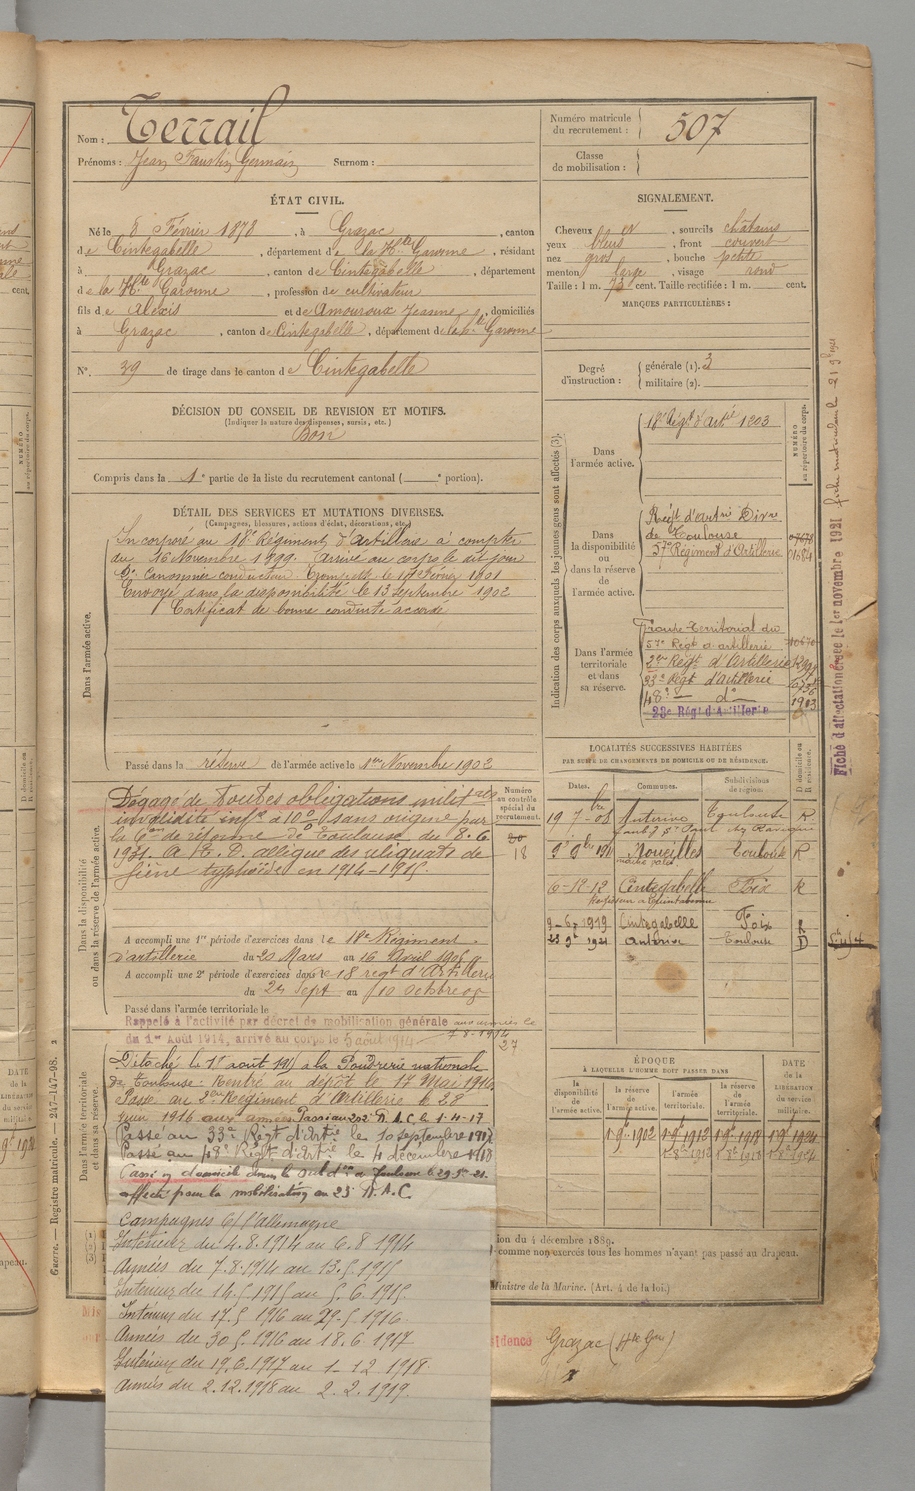 Nom : Terrail
Prénoms : Jean Faustin Germain Surnom :
Numéro matricule du recrutement : 507
Classe de mobilisation :
ÉTAT CIVIL.
Né le 8 Février 1878, à Grazac, canton
de Cintegabelle, département de la Hte Garonne, résidant
à Grazac, canton de Cintegabelle, département
de la Hte Garonne, profession de cultivateur
fils de Alexis et de Amouroux Jeanne, domiciliés
à Grazac, canton de Cintegabelle, département de la Hte Garonne
N° 39 de tirage dans le canton de Cintegabelle
SIGNALEMENT.
Cheveux et, sourcils châtains
yeux bleus, front couvert
nez gros, bouche petite
menton large, visage rond
Taille : 1 m. 73 cent. Taille rectifiée : 1 m. cent.
MARQUES PARTICULIÈRES :
Degré d'instruction : générale (1). 3
militaire (2).
DÉCISION DU CONSEIL DE REVISION ET MOTIFS.
(Indiquer la nature des dispenses, sursis, etc.)
Bon
Compris dans la 1e partie de la liste du recrutement cantonal ( e portion).
DÉTAIL DES SERVICES ET MUTATIONS DIVERSES.
(Campagnes, blessures, actions d'éclat, décorations, etc.)
Dans l'armée active.
Incorporé au 18e Régiment d'Artillerie à compter
du 16 Novembre 1899. Arrivé au corps le dit jour
2e Canonnier conducteur. Trompette le 17 Février 1901
Envoyé dans la disponibilité le 13 Septembre 1902
Certificat de bonne conduite accordé
Passé dans la réserve de l'armée active le 1er Novembre 1902
Indication des corps auxquels les jeunes gens sont affectés (3).
NUMÉRO au répertoire du corps.
Dans l'armée active.
18e Régt d'Artie 1203
Dans la disponibilité ou dans la réserve de l'armée active.
Régt d'artie Divre
de Toulouse
57e Régiment d'Artillerie
Dans l'armée territoriale et dans sa réserve.
Groupe Territorial du
57e Régt d'artillerie
2e Régt d'Artillerie
33e Régt d'artillerie
48e — do
23e Régt d'Artillerie
Fiche d'affectation créée le 1er novembre 1921
Dans la disponibilité ou dans la réserve de l'armée active.
Numéro au contrôle spécial du recrutement.
Dégagé de toutes obligations militres
invalidité infre à 10% sans origine par
la Con de réforme de Toulouse du 8.6
1931. A.R.D. allègue des reliquats de
fièvre typhoïde en 1914-1915.
18
A accompli une 1re période d'exercices dans le 18e Régiment
d'artillerie du 20 Mars au 16 Avril 1905
A accompli une 2e période d'exercices dans le 18 regt d'Artillerie
du 24 Sept au 10 octobre 08
Passé dans l'armée territoriale le
Rappelé à l'activité par décret de mobilisation générale aux armées le
du 1er Août 1914, arrivé au corps le 5 aout 1914 7-8-1914
27
LOCALITÉS SUCCESSIVES HABITÉES
PAR SUITE DE CHANGEMENTS DE DOMICILE OU DE RÉSIDENCE.
Dates. Communes. Subdivisions de région. D domicile ou R résidence.
19 7bre 08 Auterive Toulouse R
9bre 1911 Noueilles Toulouse R
6-12-12 Cintegabelle Foix R
9-6-1919 Cintegabelle Foix
1921 Auterive Toulouse D
Dans l'armée territoriale et dans sa réserve.
Détaché le 1er août 1915 à la Poudrerie nationale
de Toulouse. Rentré au dépôt le 17 Mai 1916
Passé au 2e Régiment d'Artillerie le 28
Juin 1916 aux armées. Passé au 202e R.A.C. le 1-4-17
Passé au 33e Régt d'Artie le 10 septembre 1917
Passé au 48e Régt d'Artie le 4 décembre 1918
affecté pour la mobilisation au 23e R.A.C.
ÉPOQUE
À LAQUELLE L'HOMME DOIT PASSER DANS
la disponibilité de l'armée active. la réserve de l'armée active. l'armée territoriale. la réserve de l'armée territoriale. DATE de la LIBÉRATION du service militaire.
1 9bre 1902 1 9bre 1912 1 9bre 1918 1 9bre 1924
1 8e 1912 1 8e 1918 1 8e 1924
Campagnes C/ l'Allemagne
Intérieur du 4.8.1914 au 6.8.1914
Armées du 7.8.1914 au 13.5.1915
Intérieur du 14.5.1915 au 5.6.1915
Intérieur du 17.5.1916 au 29.5.1916
Armées du 30.5.1916 au 18.6.1917
Intérieur du 19.6.1917 au 1.12.1918
Armées du 2.12.1918 au 2.2.1919
tion du 4 décembre 1889.
comme non exercés tous les hommes n'ayant pas passé au drapeau.
Ministre de la Marine. (Art. 4 de la loi.)
sidence Grazac (Hte Gne)
Guerre. — Registre matricule. — 247-147-98. 2